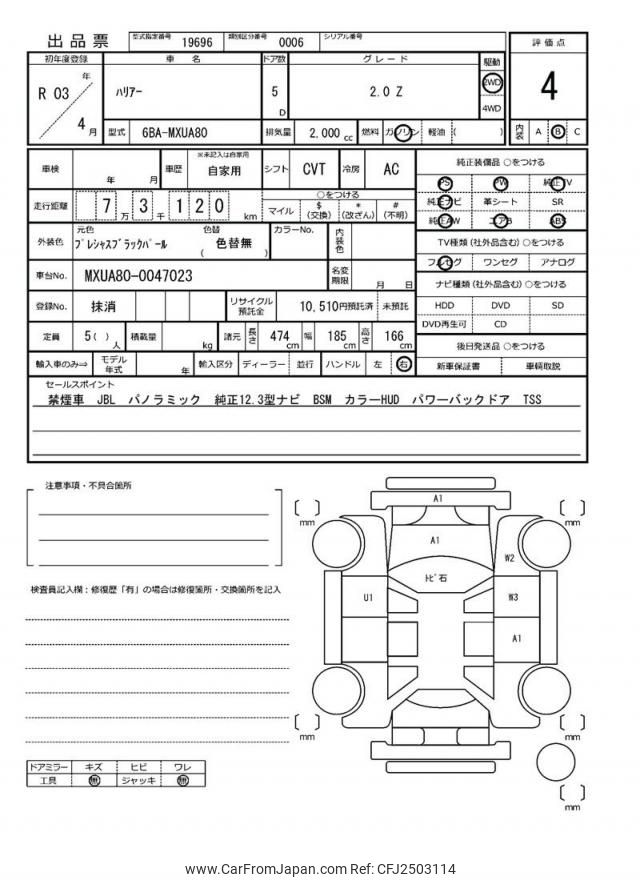 出品票 型式指定番号 19696 類別区分番号 0006 シリアル番号
初年度登録 車名 ドア数 グレード 駆動 評価点
R 03 年 4 月 ﾊﾘｱｰ 5 D 2.0 Z 2WD 4WD 4
型式 6BA-MXUA80 排気量 2,000 cc 燃料 ガソリン 軽油 ( ) 内装 A B C
車検 年 月 車歴 ※未記入は自家用 自家用 シフト CVT 冷房 AC 純正装備品 ○をつける
PS PW 純正TV
走行距離 7 万 3 千 1 2 0 km ○をつける 純正ナビ 革シート SR
マイル $ (交換) * (改ざん) # (不明) 純正AW エアB ABS
外装色 元色 ﾌﾟﾚｼｬｽﾌﾞﾗｯｸﾊﾟｰﾙ 色替 ( 色替無 ) カラーNo. 内装色 TV種類 (社外品含む) ○をつける
フルセグ ワンセグ アナログ
車台No. MXUA80-0047023 名変期限 月 日 ナビ種類 (社外品含む) ○をつける
登録No. 抹消 リサイクル預託金 10,510円預託済 未預託 HDD DVD SD
DVD再生可 CD
定員 5 ( ) 人 積載量 kg 諸元 長さ 474 cm 幅 185 cm 高さ 166 cm 後日発送品 ○をつける
輸入車のみ⇒ モデル年式 年 輸入区分 ディーラー 並行 ハンドル 左 右 新車保証書 車輌取説
セールスポイント
禁煙車 JBL パノラミック 純正12.3型ナビ BSM カラーHUD パワーバックドア TSS
注意事項・不具合箇所
検査員記入欄：修復歴「有」の場合は修復箇所・交換箇所を記入
A1
mm mm
A1
W2
ﾄﾋﾞ石
U1 W3
A1
mm mm
mm
ドアミラー キズ ヒビ ワレ
工具 無 ジャッキ 無
www.CarFromJapan.com Ref: CFJ2503114